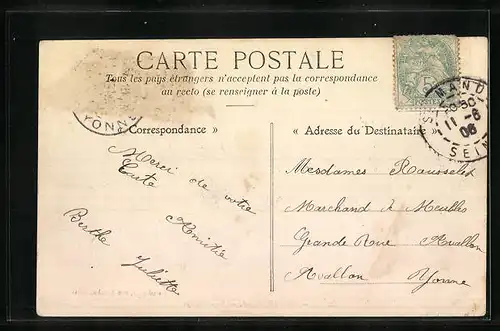 CARTE POSTALE
Tous les pays étrangers n'acceptent pas la correspondance
au recto (se renseigner à la poste)
Correspondance »
« Adresse du Destinataire »
YONNE
MAND
11-6
06
SEIN
5
Merci de votre
Carte
Amitié
Berthe Juliette
Mesdames Rousselet
Marchand de Meubles
Grande Rue Avallon
Avallon Yonne